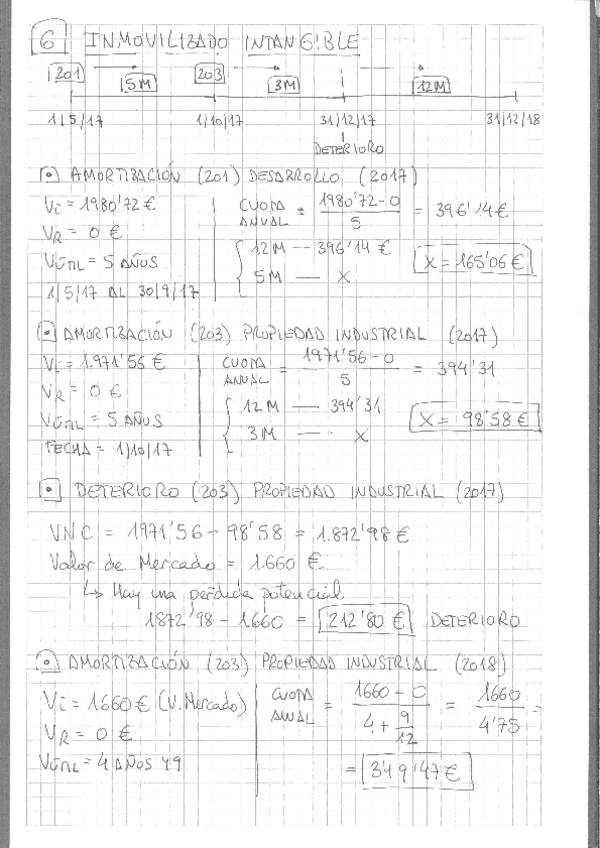 6 INMOVILIZADO INTANGIBLE
201 203
5M 3M 12M
1/5/17 1/10/17 31/12/17 31/12/18
DETERIORO
AMORTIZACIÓN (201) DESARROLLO (2017)
Vi = 1980'72 €
VR = 0 €
VÚTIL = 5 AÑOS
1/5/17 AL 30/9/17
CUOTA ANUAL = 1980'72 - 0 / 5 = 396'14 €
12M -- 396'14 €
5M — X
X = 165'06 €
AMORTIZACIÓN (203) PROPIEDAD INDUSTRIAL (2017)
Vi = 1.971'56 €
VR = 0 €
VÚTIL = 5 AÑOS
FECHA = 1/10/17
CUOTA ANUAL = 1971'56 - 0 / 5 = 394'31
12M — 394'31
3M — X
X = 98'58 €
DETERIORO (203) PROPIEDAD INDUSTRIAL (2017)
VNC = 1971'56 - 98'58 = 1.872'98 €
Valor de Mercado = 1.660 €
↳ Hay una perdida potencial
1872'98 - 1660 = 212'80 € DETERIORO
AMORTIZACIÓN (203) PROPIEDAD INDUSTRIAL (2018)
Vi = 1660 € (V. Mercado)
VR = 0 €
VÚTIL = 4 AÑOS Y 9
CUOTA ANUAL = 1660 - 0 / 4 + 9/12 = 1660 / 4'75 =
= 349'47 €